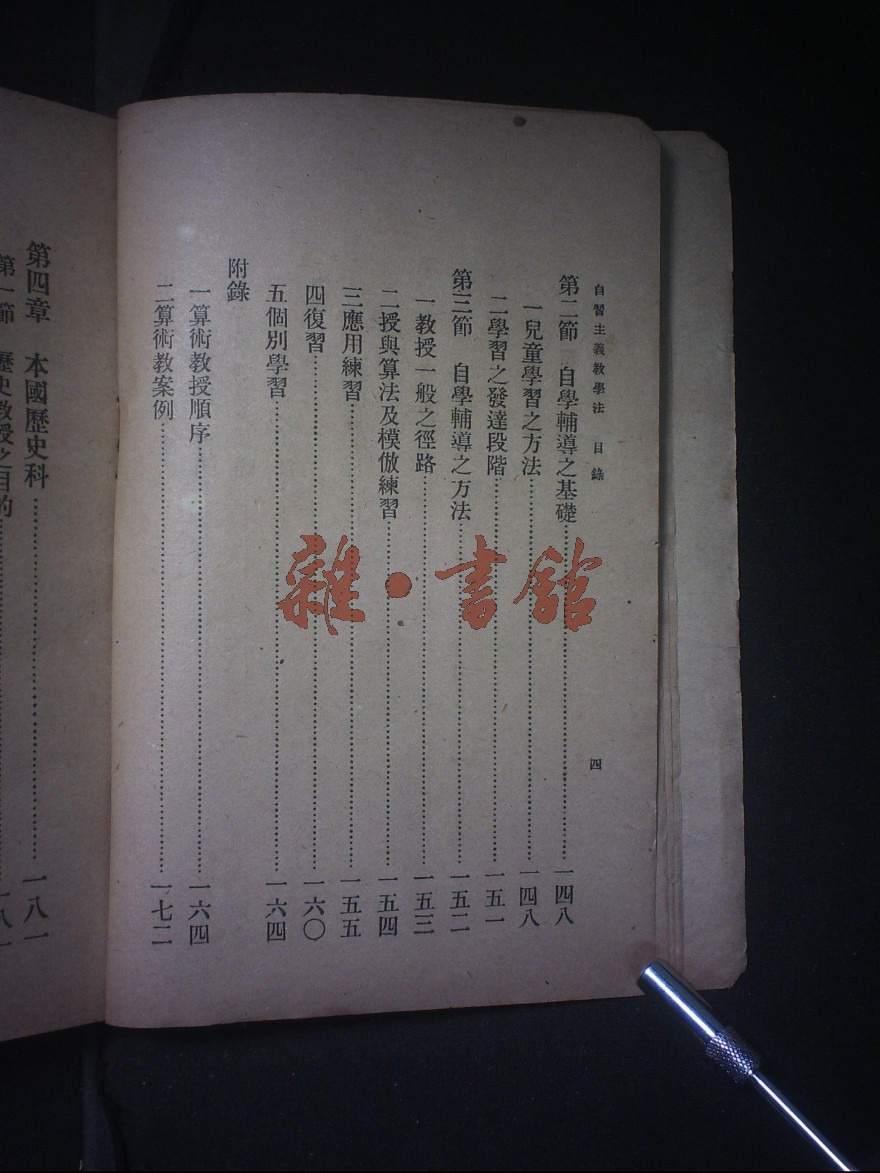 自習主義教學法　目錄
四
第二節　自學輔導之基礎…………一四八
一兒童學習之方法…………一四八
二學習之發達段階…………一五一
第三節　自學輔導之方法…………一五二
一教授一般之徑路…………一五三
二授與算法及模倣練習…………一五四
三應用練習…………一五五
四復習…………一六〇
五個別學習…………一六四
附錄
一算術教授順序…………一六四
二算術教案例…………一七二
第四章　本國歷史科…………一八一
第一節　歷史教授之目的…………一八一
雜·書館